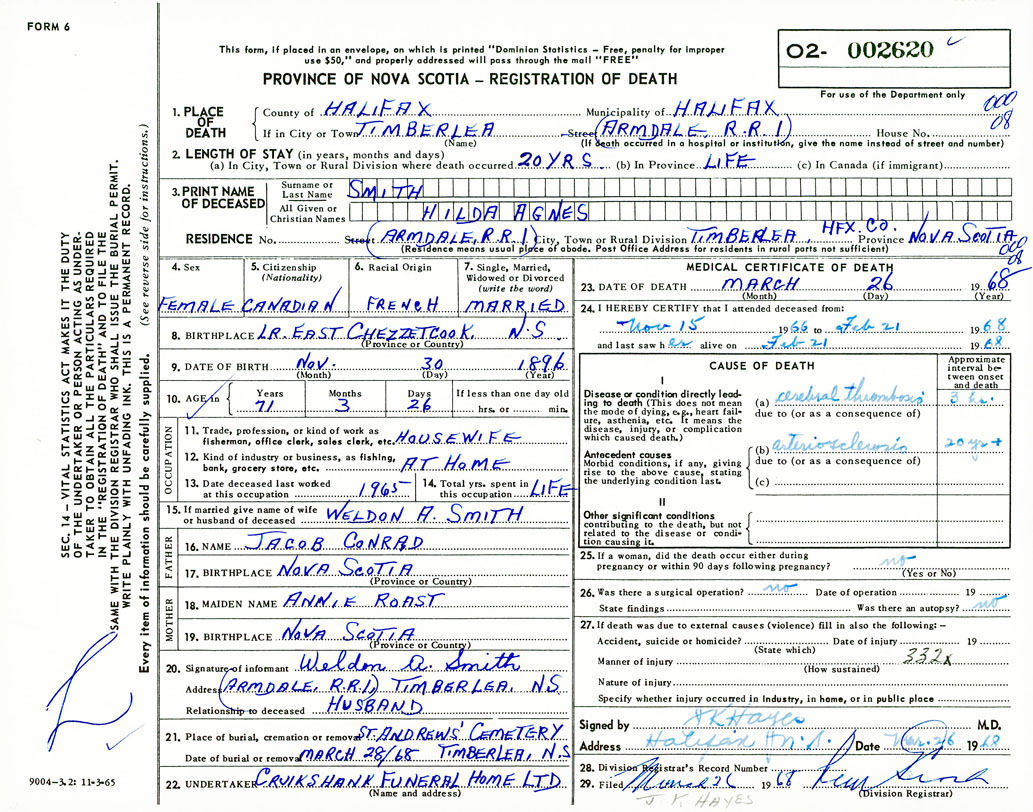 FORM 6
This form, if placed in an envelope, on which is printed "Dominion Statistics – Free, penalty for improper
use $50," and properly addressed will pass through the mail "FREE"
PROVINCE OF NOVA SCOTIA – REGISTRATION OF DEATH
O2- 002620
For use of the Department only
000
08
1. PLACE OF DEATH
County of HALIFAX Municipality of HALIFAX
If in City or Town TIMBERLEA Street (ARMDALE, R.R.1) House No.
(Name) (If death occurred in a hospital or institution, give the name instead of street and number)
2. LENGTH OF STAY (in years, months and days)
(a) In City, Town or Rural Division where death occurred. 20 YRS (b) In Province LIFE (c) In Canada (if immigrant)
3. PRINT NAME OF DECEASED
Surname or Last Name SMITH
All Given or Christian Names HILDA AGNES
RESIDENCE No. Street (ARMDALE, R.R.1) City, Town or Rural Division TIMBERLEA, HFX. CO. Province NOVA SCOTIA
(Residence means usual place of abode. Post Office Address for residents in rural parts not sufficient)
000
08
4. Sex FEMALE
5. Citizenship (Nationality) CANADIAN
6. Racial Origin FRENCH
7. Single, Married, Widowed or Divorced (write the word) MARRIED
8. BIRTHPLACE LR. EAST CHEZZETCOOK, N.S.
(Province or Country)
9. DATE OF BIRTH NOV. 30 1896
(Month) (Day) (Year)
10. AGE in Years Months Days If less than one day old
71 3 26 hrs. or min.
OCCUPATION
11. Trade, profession, or kind of work as
fisherman, office clerk, sales clerk, etc. HOUSEWIFE
12. Kind of industry or business, as fishing,
bank, grocery store, etc. AT HOME
13. Date deceased last worked at this occupation 1965
14. Total yrs. spent in this occupation LIFE
15. If married give name of wife
or husband of deceased WELDON A. SMITH
FATHER
16. NAME JACOB CONRAD
17. BIRTHPLACE NOVA SCOTIA
(Province or Country)
MOTHER
18. MAIDEN NAME ANNIE ROAST
19. BIRTHPLACE NOVA SCOTIA
(Province or Country)
20. Signature of informant Weldon A. Smith
Address (ARMDALE, R.R.1) TIMBERLEA, N.S.
Relationship to deceased HUSBAND
21. Place of burial, cremation or removal ST. ANDREWS' CEMETERY
Date of burial or removal MARCH 28/68 TIMBERLEA, N.S
22. UNDERTAKER CRUIKSHANK FUNERAL HOME LTD.
(Name and address)
MEDICAL CERTIFICATE OF DEATH
23. DATE OF DEATH MARCH 26 1968
(Month) (Day) (Year)
24. I HEREBY CERTIFY that I attended deceased from:
Nov 15 1966 to Feb 21 1968
and last saw her alive on Feb 21 1968
CAUSE OF DEATH
Approximate interval between onset and death
I
Disease or condition directly leading to death (This does not mean the mode of dying, e.g., heart failure, asthenia, etc. It means the disease, injury, or complication which caused death.)
(a) cerebral thrombosis 3 hr.
due to (or as a consequence of)
Antecedent causes
Morbid conditions, if any, giving rise to the above cause, stating the underlying condition last.
(b) arteriosclerosis 20 yr +
due to (or as a consequence of)
(c)
II
Other significant conditions
contributing to the death, but not related to the disease or condition causing it.
25. If a woman, did the death occur either during
pregnancy or within 90 days following pregnancy? no
(Yes or No)
26. Was there a surgical operation? no Date of operation 19
State findings Was there an autopsy? no
27. If death was due to external causes (violence) fill in also the following: –
Accident, suicide or homicide? Date of injury 19
(State which)
Manner of injury 332x
(How sustained)
Nature of injury
Specify whether injury occurred in Industry, in home, or in public place
Signed by J K Hayes M.D.
Address Halifax N.S. Date Mar. 26 1968
28. Division Registrar's Record Number
29. Filed March 26 1968
(Division Registrar)
J. K. HAYES
SEC. 14 – VITAL STATISTICS ACT MAKES IT THE DUTY
OF THE UNDERTAKER OR PERSON ACTING AS UNDER-
TAKER TO OBTAIN ALL THE PARTICULARS REQUIRED
IN THE "REGISTRATION OF DEATH" AND TO FILE THE
SAME WITH THE DIVISION REGISTRAR WHO SHALL ISSUE THE BURIAL PERMIT.
WRITE PLAINLY WITH UNFADING INK. THIS IS A PERMANENT RECORD.
Every item of information should be carefully supplied. (See reverse side for instructions.)
9004–3.2: 11-3-65